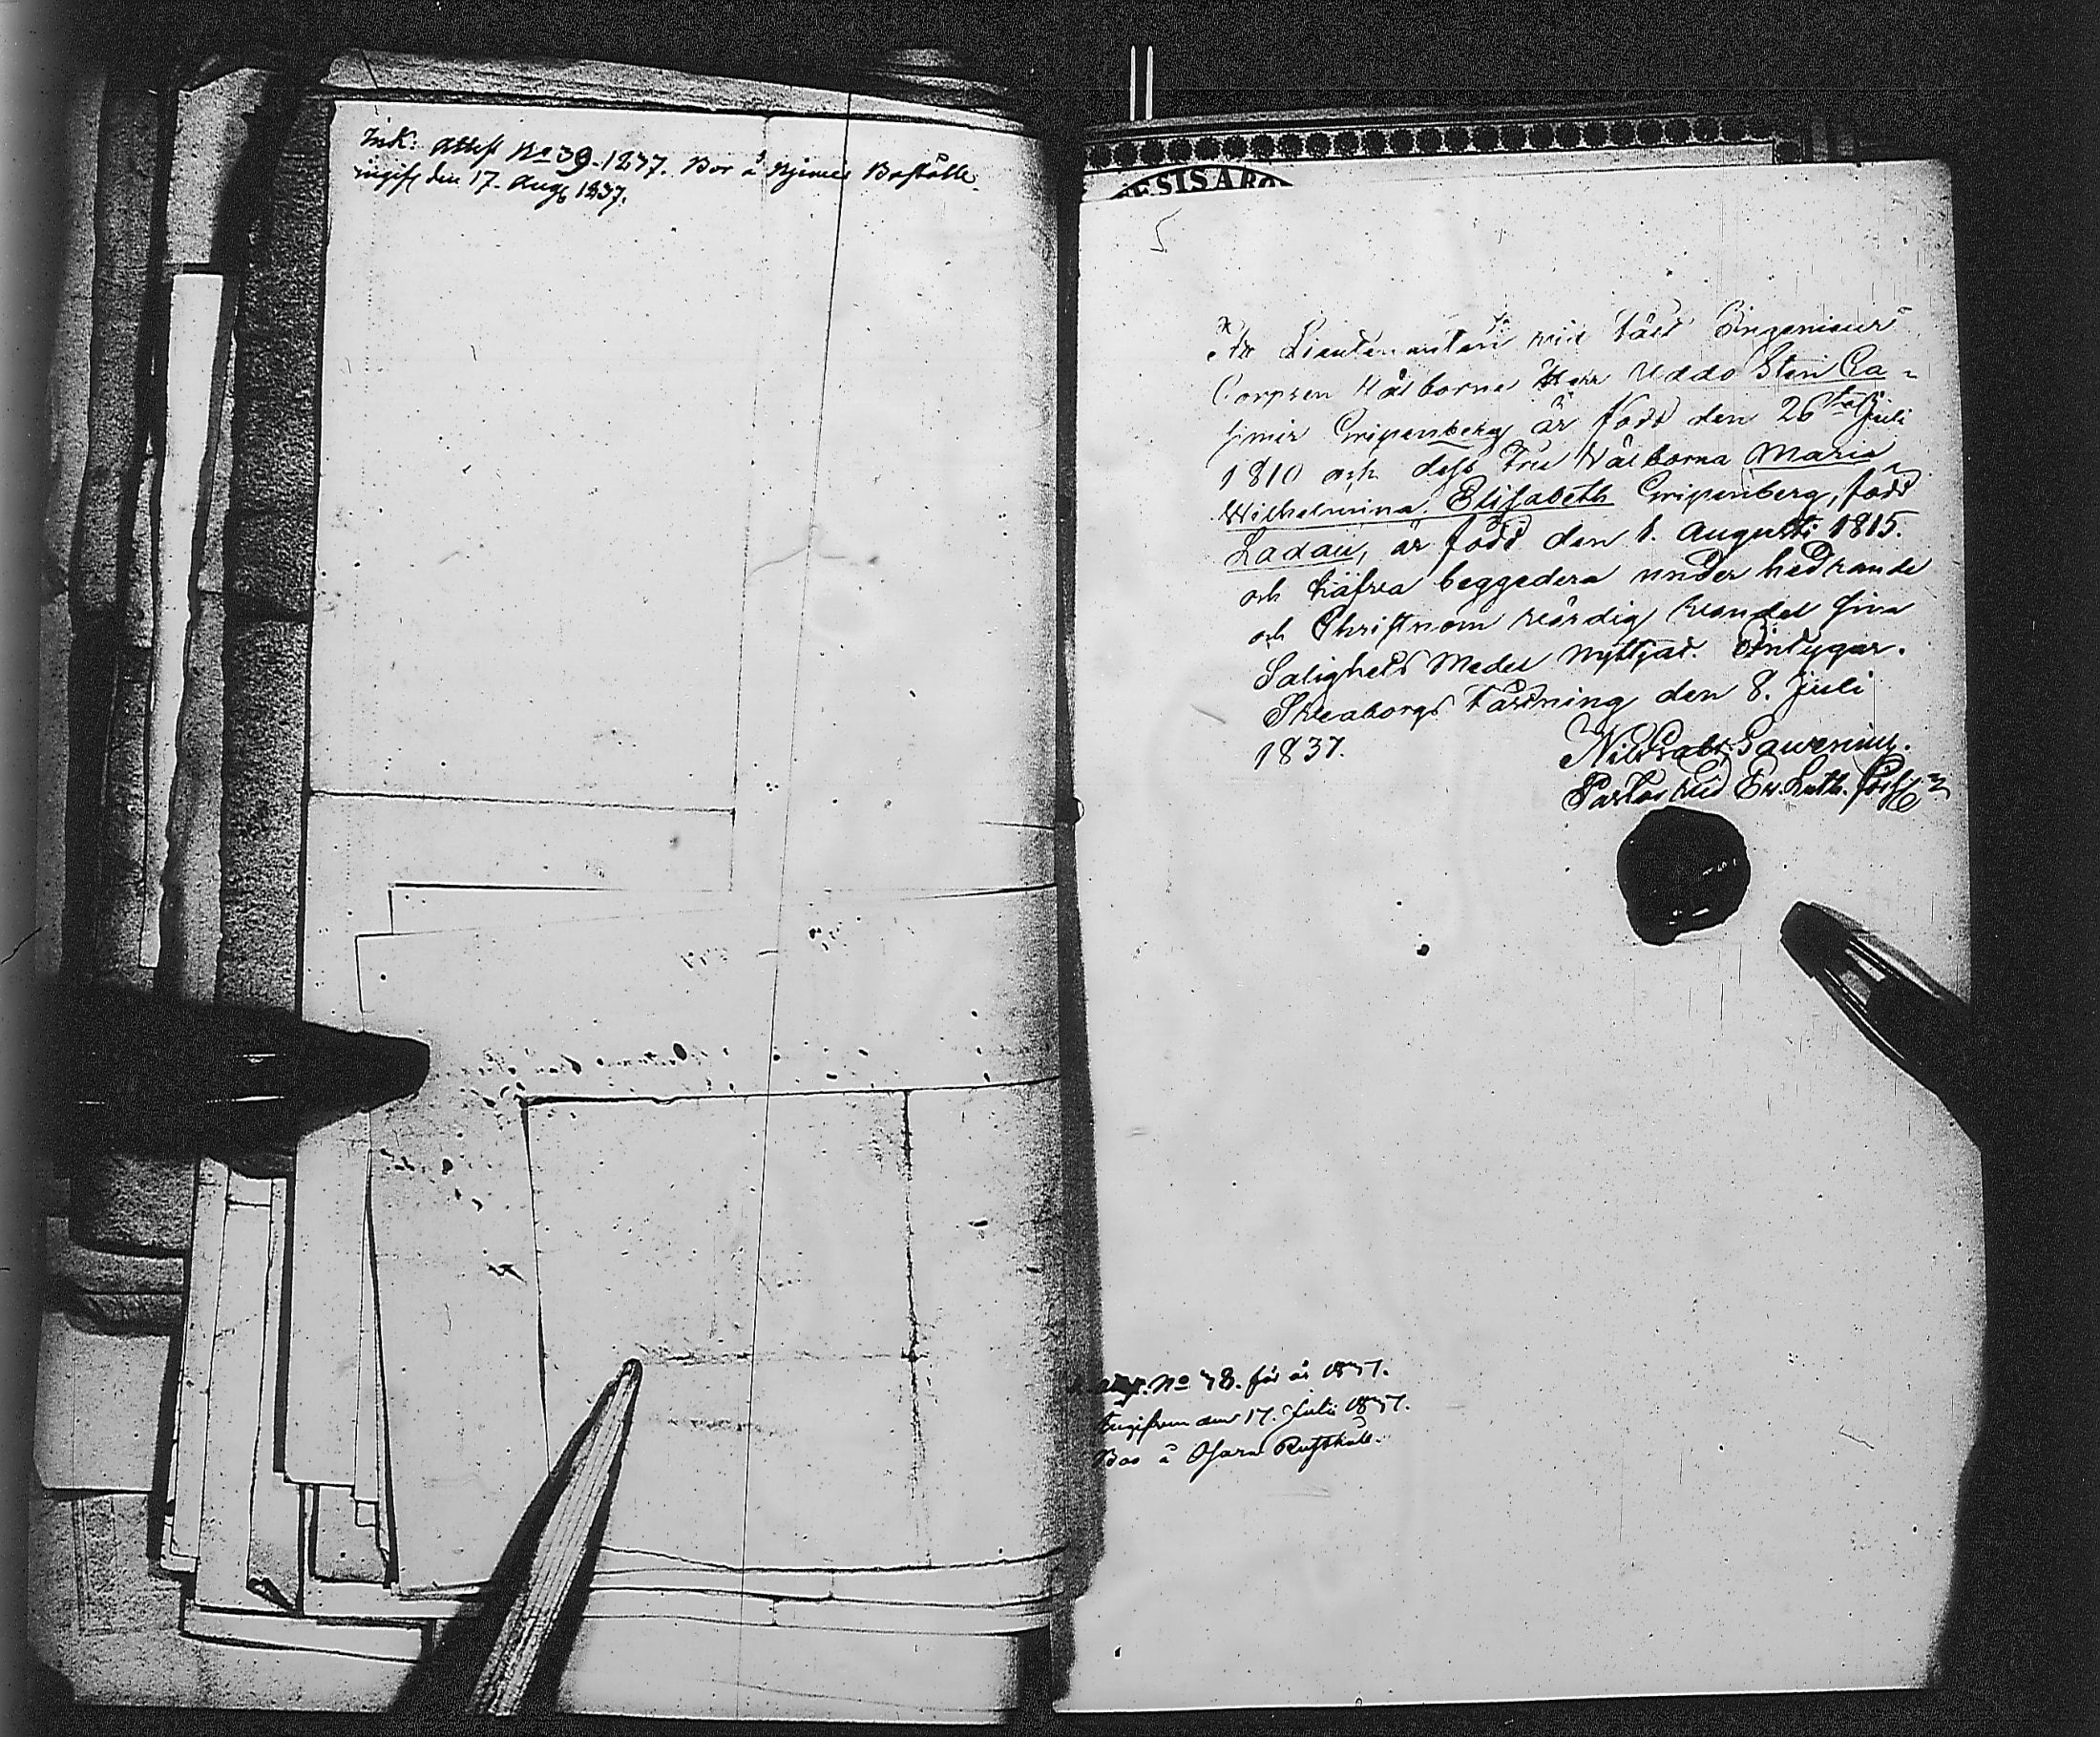 Ink: Attest No 39-1837. Bor å Boställe.
ingift den 17. Aug 1837.
ESIS ABO
5
At Lieutenanten vid Ingenieurs
Corpsen Wälborne Herr Uddo Sten Ca-
simir Gripenberg är född den 26te Juli
1810 och dess Fru Wälborna Maria
Wilhelmina Elisabeth Gripenberg, född
Ladau, är född den 1. Augusti 1815.
och häfva beggedera under hedrande
och Christnom värdig vandel sina
Salighets Medel nyttjat. Intygar.
Sveaborgs Fästning den 8. Juli
1837.
Nils Gabr.
Pastor vid Ev. Luth.
No 38. för år 1837.
Ingifven den 17. Julii 1837.
Bor å Rusthåll.